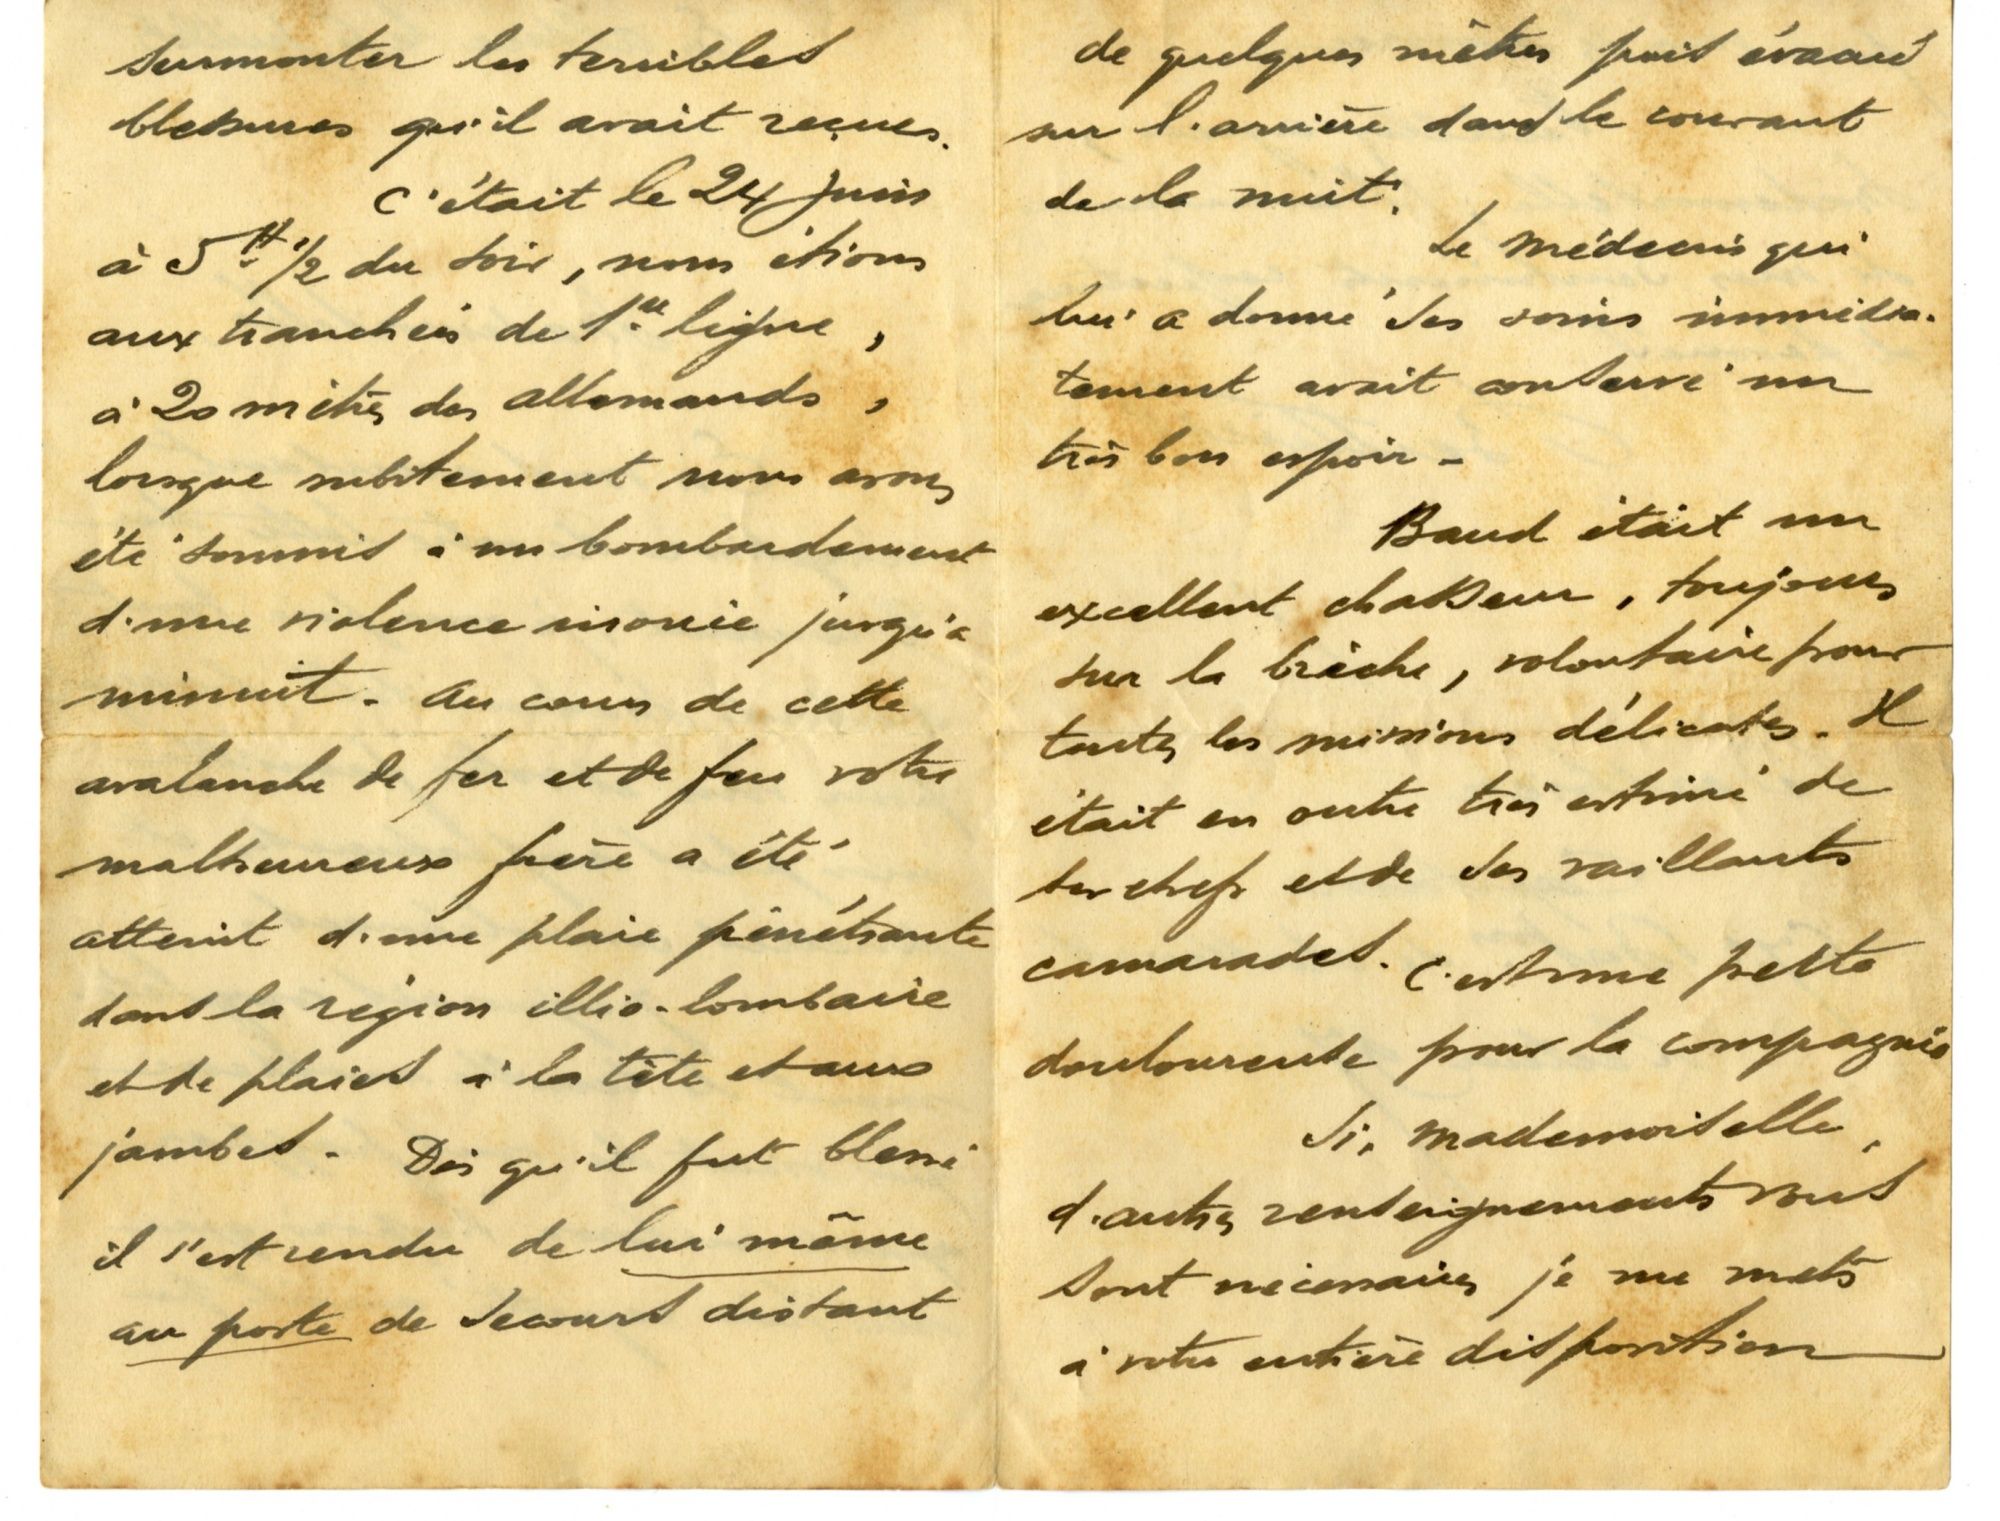 surmonter les terribles
blessures qu'il avait reçues.
C'était le 24 juin
à 5 H 1/2 du soir, nous étions
aux tranchées de 1ère ligne,
à 20 mètres des allemands,
lorsque subitement nous avons
été soumis à un bombardement
d'une violence inouïe jusqu'à
minuit. Au cours de cette
avalanche de fer et de feu votre
malheureux frère a été
atteint d'une plaie pénétrante
dans la région illio-lombaire
et de plaies à la tête et aux
jambes. Dès qu'il fut blessé
il s'est rendu de lui même
au poste de secours distant
de quelques mètres puis évacué
sur l'arrière dans le courant
de la nuit.
Le médecin qui
lui a donné ses soins immédia-
tement avait conservé un
très bon espoir -
Baud était un
excellent chasseur, toujours
sur la brèche, volontaire pour
toutes les missions délicates. Il
était en outre très estimé de
ses chefs et de ses vaillants
camarades. C'est une perte
douloureuse pour la compagnie
Si, Mademoiselle,
d'autres renseignements vous
sont nécessaires je me mets
à votre entière disposition